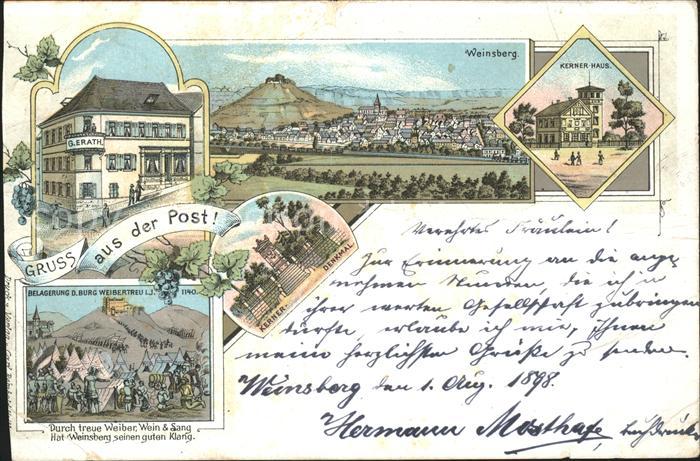 Weinsberg.
KERNER-HAUS.
G. ERATH.
GRUSS aus der Post!
KERNER-DENKMAL
BELAGERUNG D. BURG WEIBERTREU I. J. 1140.
Durch treue Weiber, Wein & Sang
Hat Weinsberg seinen guten Klang.
Verehrtes Fräulein!
Zur Erinnerung an die ange-
nehmen Stunden, die ich in
ihrer werten Gesellschaft zubringen
durfte, erlaube ich mir, Ihnen
meine herzlichsten Grüße zu senden.
Weinsberg den 1. Aug. 1898.
Hermann Mosthafe,